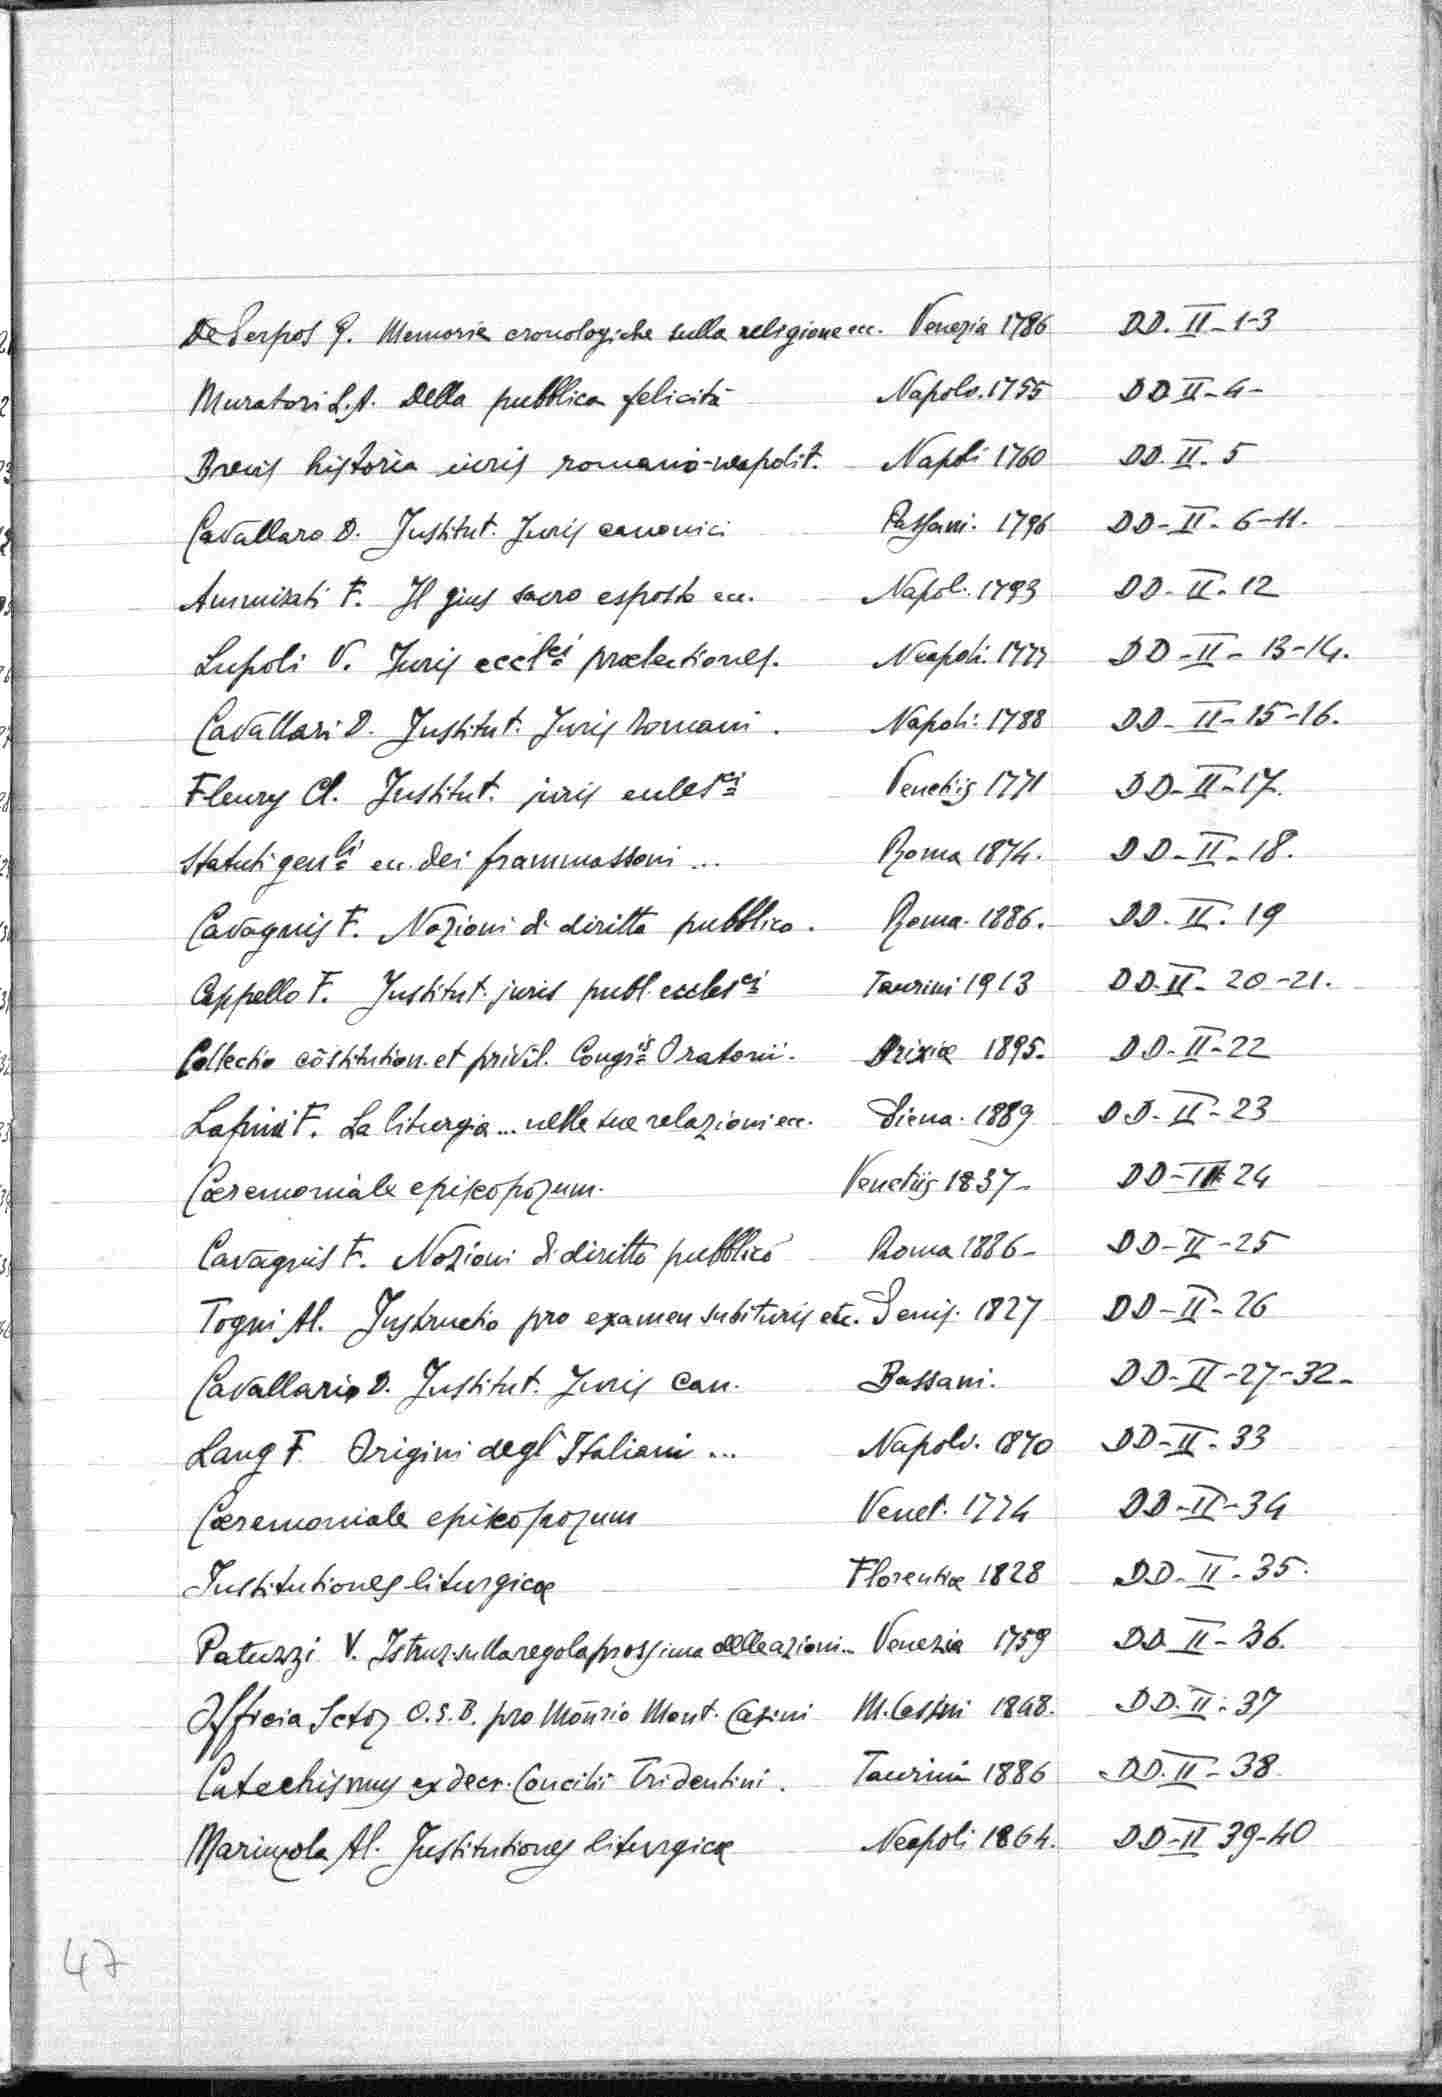 De Serpos G. Memorie cronologiche sulla religione ecc. Venezia 1786 DD. II-1-3
Muratori L.A. Della pubblica felicità Napoli. 1755 DD II-4-
Brevis historia iuris romano-neapolit. Napoli 1760 DD. II. 5
Cavallaro D. Institut. Juris canonici Bassani. 1796 DD-II-6-11.
Ammirati F. Il gius sacro esposto ecc. Napol. 1793 DD-II-12
Lupoli V. Juris eccl.ci prælectiones. Neapoli. 1777 DD-II-13-14.
Cavallari D. Institut. Juris Romani. Napoli. 1788 DD-II-15-16.
Fleury Cl. Institut. juris eccles.ci Venetiis 1771 DD-II-17.
Statuti gen.li ecc. dei frammassoni ... Roma 1874. DD-II-18.
Cavagnis F. Nozioni di diritto pubblico. Roma. 1886. DD. II. 19
Cappello F. Institut. juris publ. eccles.ci Taurini 1913 DD. II-20-21.
Collectio cōstitution. et privil. Congr.is Oratorii. Brixiæ 1895. DD-II-22
Lapini F. La liturgia ... nelle sue relazioni ecc. Siena. 1889 DD-II-23
Cæremoniale episcoporum. Venetiis 1837- DD-II-24
Cavagnis F. Nozioni di diritto pubblico Roma 1886- DD-II-25
Togni Al. Instructio pro examen subituris etc. Senis. 1827 DD-II-26
Cavallario D. Institut. Juris Can. Bassani. DD-II-27-32-
Lang F. Origini degl'Italiani ... Napoli. 1870 DD-II-33
Cæremoniale episcoporum Venet. 1774 DD-II-34
Institutiones liturgicæ Florentiæ 1828 DD-II-35.
Patuzzi V. Istruz. sulla regola prossima delle azioni... Venezia 1759 DD II-36.
Officia Sctoꝝ O.S.B. pro Mōnrio Mont. Casini M. Casini 1848. DD. II. 37
Catechismus ex decr. Concilii Tridentini. Taurini 1886 DD. II-38
Marinzola Al. Institutiones liturgicæ Neapoli 1864. DD-II 39-40
47